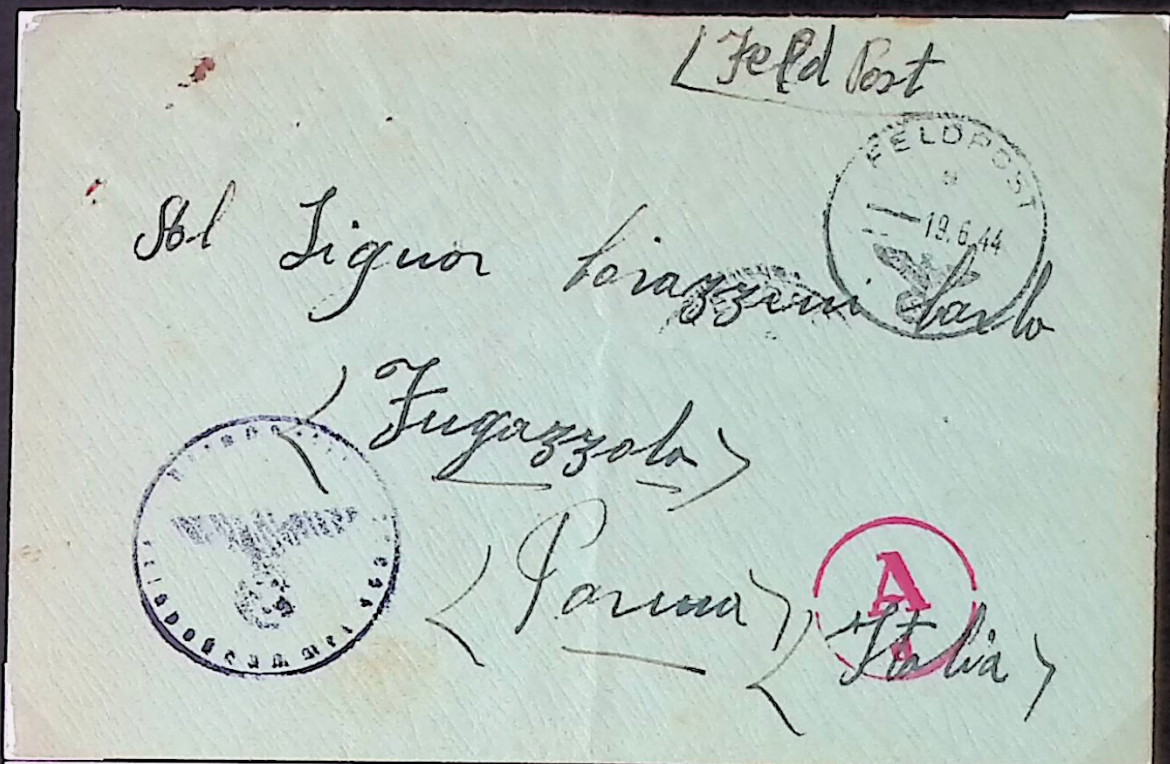 (Feld Post
FELDPOST
a
19.6.44
Sig̲nor Corazzini Carlo
(Fugazzolo)
(Parma)
A
(Italia)